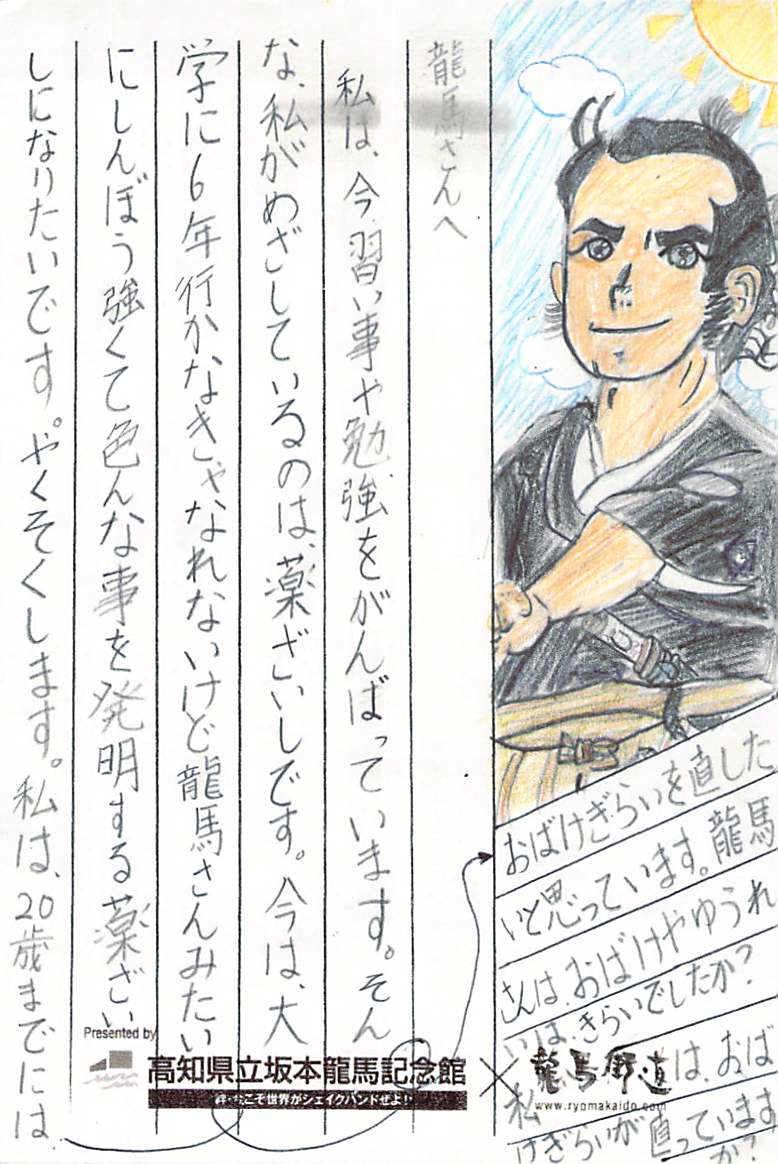 龍馬さんへ
私は、今、習い事や勉強をがんばっています。そん
な、私がめざしているのは、薬ざいしです。今は、大
学に6年行かなきゃなれないけど龍馬さんみたい
にしんぼう強くて色んな事を発明する薬ざい
しになりたいです。やくそくします。私は、20歳までには、
おばけぎらいを直した
いと思っています。龍馬
さんは、おばけやゆうれ
いは、きらいでしたか?
私 は、おば
けぎらいが直っています
か?
Presented by
高知県立坂本龍馬記念館×龍馬街道
こそ世界がシェイクハンドぜよ!!
www.ryomakaido.com